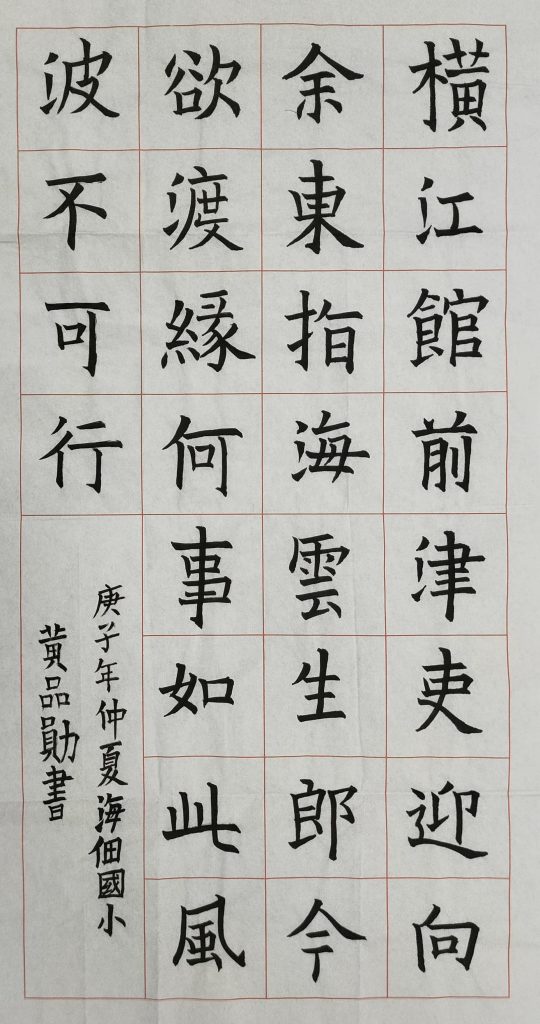 橫江館前津吏迎向
余東指海雲生郎今
欲渡緣何事如此風
波不可行
庚子年仲夏海佃國小
黃品勛書